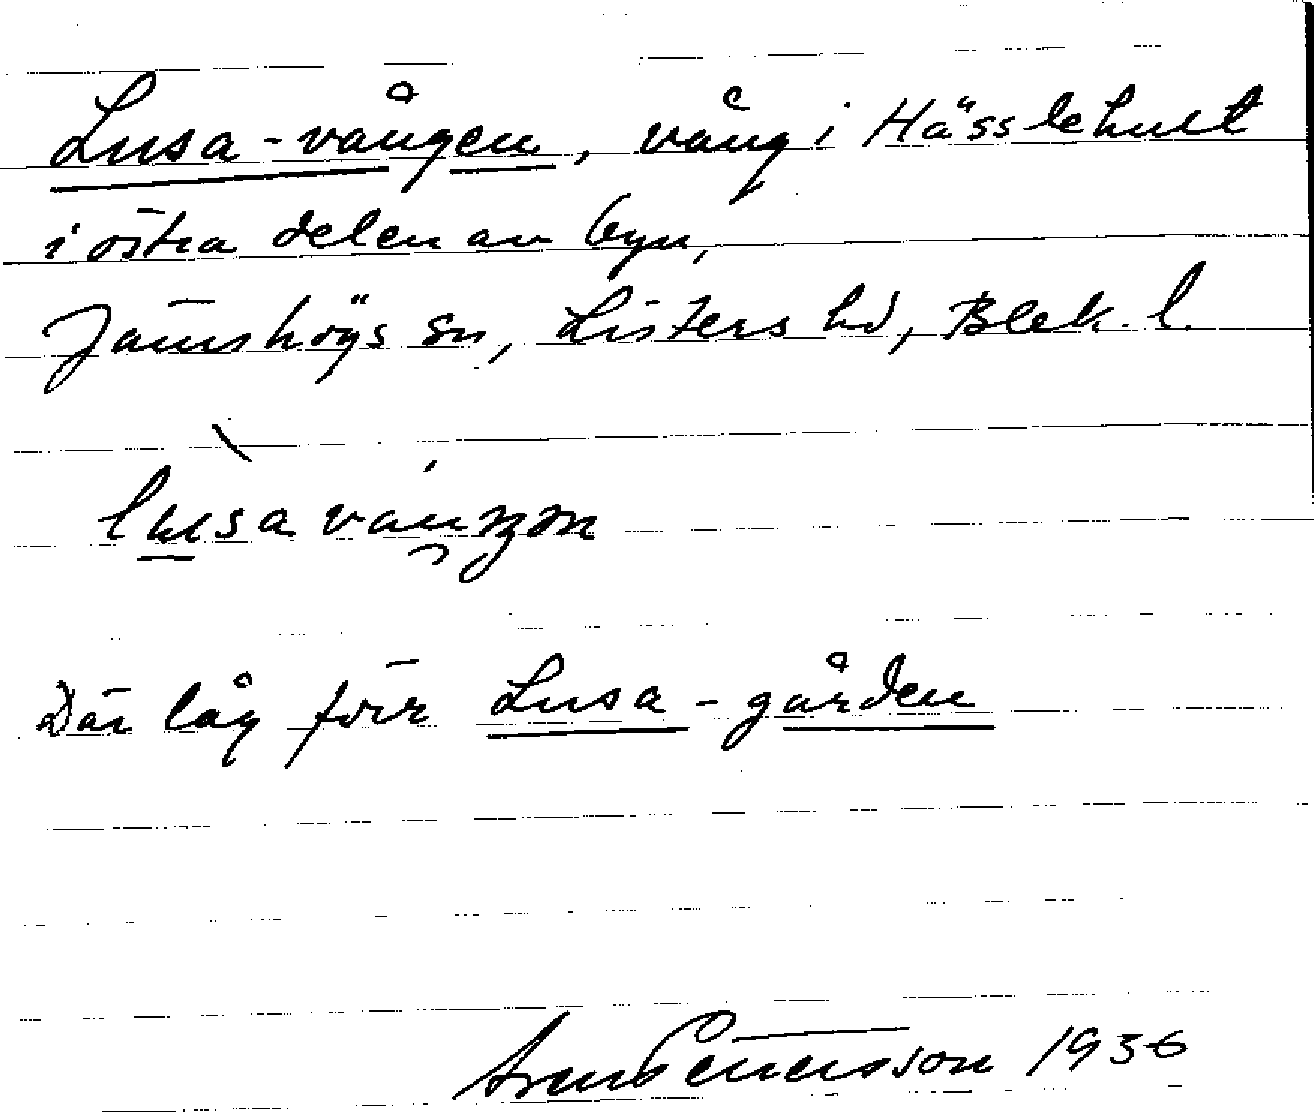 Lusa-vången, vång i Hässlehult
i östra delen av byn,
Jämshögs sn, Listers hd, Blek. l.
Där låg förr Lusa-gården
Pettersson 1936